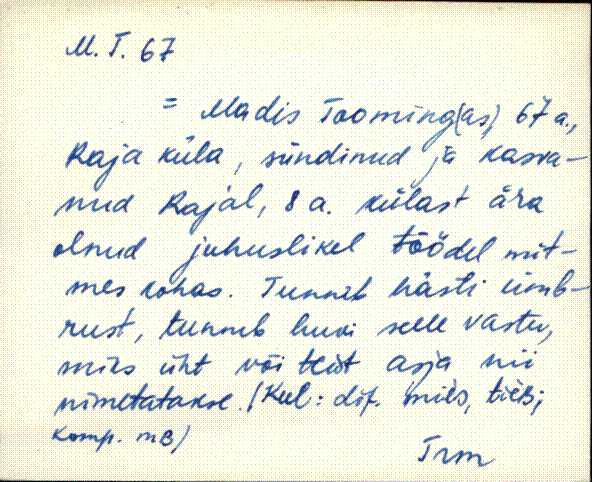 M. T. 67
= Madis Tooming(as), 67 a.,
Raja küla, sündinud ja kasva-
nud Rajal, 8 a. külast ära
olnud juhuslikel töödel mit-
mes kohas. Tunneb hästi ümb-
rust, tunneb huvi selle vastu,
miks üht või teist asja nii
nimetatakse. (Keel: dif.
komp. mB)
Trm